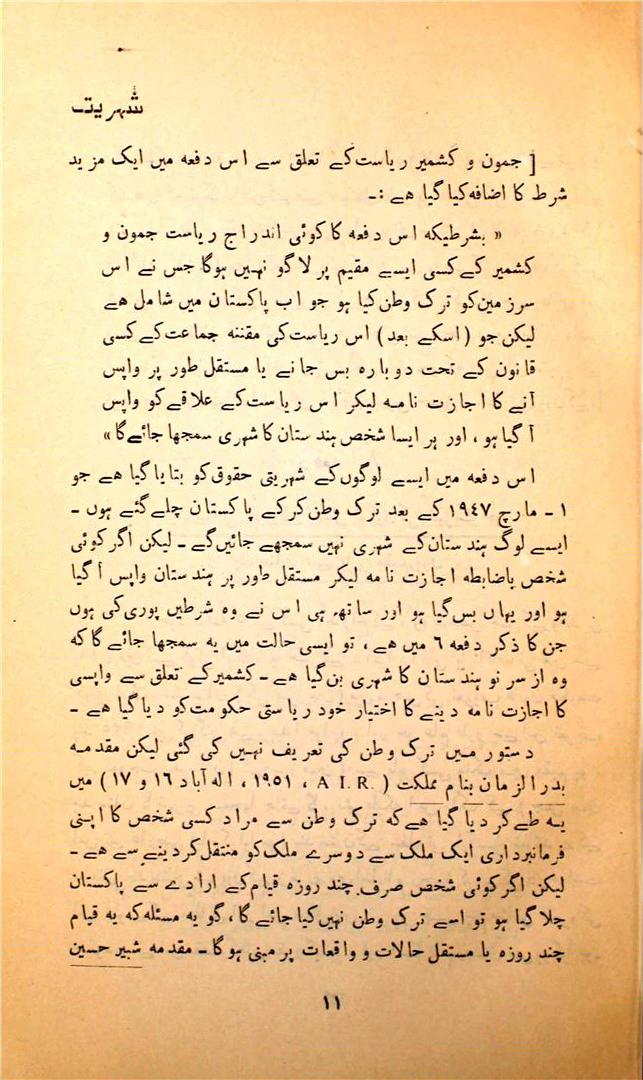 شہریت
[ جمون و کشمیر ریاست کے تعلق سے اس دفعہ میں ایک مزید
شرط کا اضافہ کیا گیا ہے :ـ
« بشرطیکہ اس دفعہ کا کوئی اندراج ریاست جمون و
کشمیر کے کسی ایسے مقیم پر لاگو نہیں ہوگا جس نے اس
سرزمین کو ترک وطن کیا ہو جو اب پاکستان میں شامل ہے
لیکن جو ( اسکے بعد ) اس ریاست کی مقننہ جماعت کے کسی
قانون کے تحت دوبارہ بس جانے یا مستقل طور پر واپس
آنے کا اجازت نامہ لیکر اس ریاست کے علاقے کو واپس
آ گیا ہو ، اور ہر ایسا شخص ہندستان کا شہری سمجھا جائے گا »
اس دفعہ میں ایسے لوگوں کے شہریتی حقوق کو بتایا گیا ہے جو
۱ ـ مارچ ۱۹٤۷ کے بعد ترک وطن کر کے پاکستان چلے گئے ہوں ـ
ایسے لوگ ہندستان کے شہری نہیں سمجھے جائیں گے ـ لیکن اگر کوئی
شخص باضابطہ اجازت نامہ لیکر مستقل طور پر ہندستان واپس آ گیا
ہو اور یہاں بس گیا ہو اور ساتھ ہی اس نے وہ شرطیں پوری کی ہوں
جن کا ذکر دفعہ ٦ میں ہے ، تو ایسی حالت میں یہ سمجھا جائے گا کہ
وہ از سر نو ہندستان کا شہری بن گیا ہے ـ کشمیر کے تعلق سے واپسی
کا اجازت نامہ دینے کا اختیار خود ریاستی حکومت کو دیا گیا ہے ـ
دستور میں ترک وطن کی تعریف نہیں کی گئی لیکن مقدمہ
بدر الزمان بنام مملکت ( A I.R. ، ۱۹۵۱ ، الہ آباد ۱٦ و ۱۷ ) میں
یہ طے کر دیا گیا ہے کہ ترک وطن سے مراد کسی شخص کا اپنی
فرمانبرداری ایک ملک سے دوسرے ملک کو منتقل کر دینے سے ہے ـ
لیکن اگر کوئی شخص صرف چند روزہ قیام کے ارادے سے پاکستان
چلا گیا ہو تو اسے ترک وطن نہیں کیا جائے گا ، گو یہ مسئلہ کہ یہ قیام
چند روزہ یا مستقل حالات و واقعات پر مبنی ہوگا ـ مقدمہ شبیر حسین
۱۱